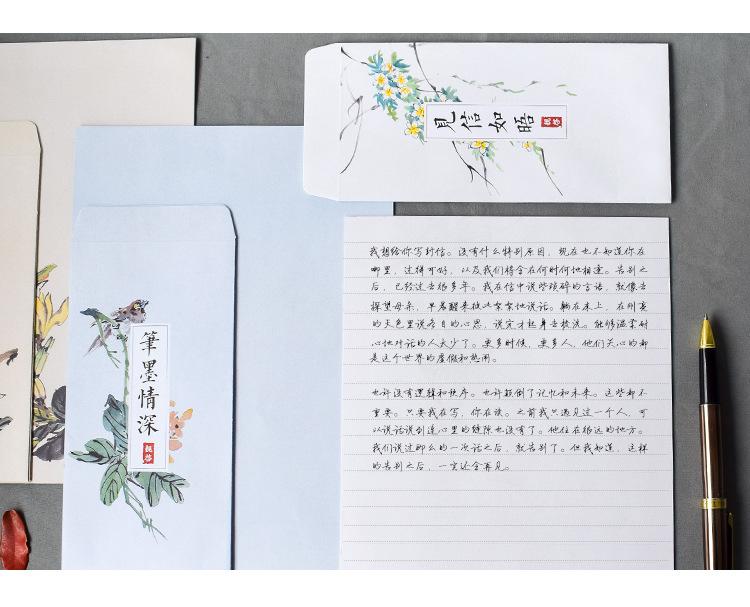 見信如晤
親啓
筆墨情深
親啓
我想给你写封信。没有什么特别原因，现在也不知道你在
哪里，过得可好，以及我们将会在何时何地相逢。告别之
后，已经过去很多年。我在信中说些琐碎的言语，就像去
探望母亲，早晨醒来彼此絮絮地说话。躺在床上，在刚亮
的天色里说各自的心思，说完才起身去梳洗。能够温柔耐
心地对话的人太少了。更多时候，更多人，他们关心的都
是这个世界的虚假和热闹。
也许没有逻辑和秩序。也许颠倒了记忆和未来。这些都不
重要。只要我在写，你在读。之前我只遇见过一个人，可
以说话说到连心里的缝隙也没有了。他住在很远的地方。
我们说过那么的一次话之后，就告别了。但我知道，这样
的告别之后，一定还会再见。